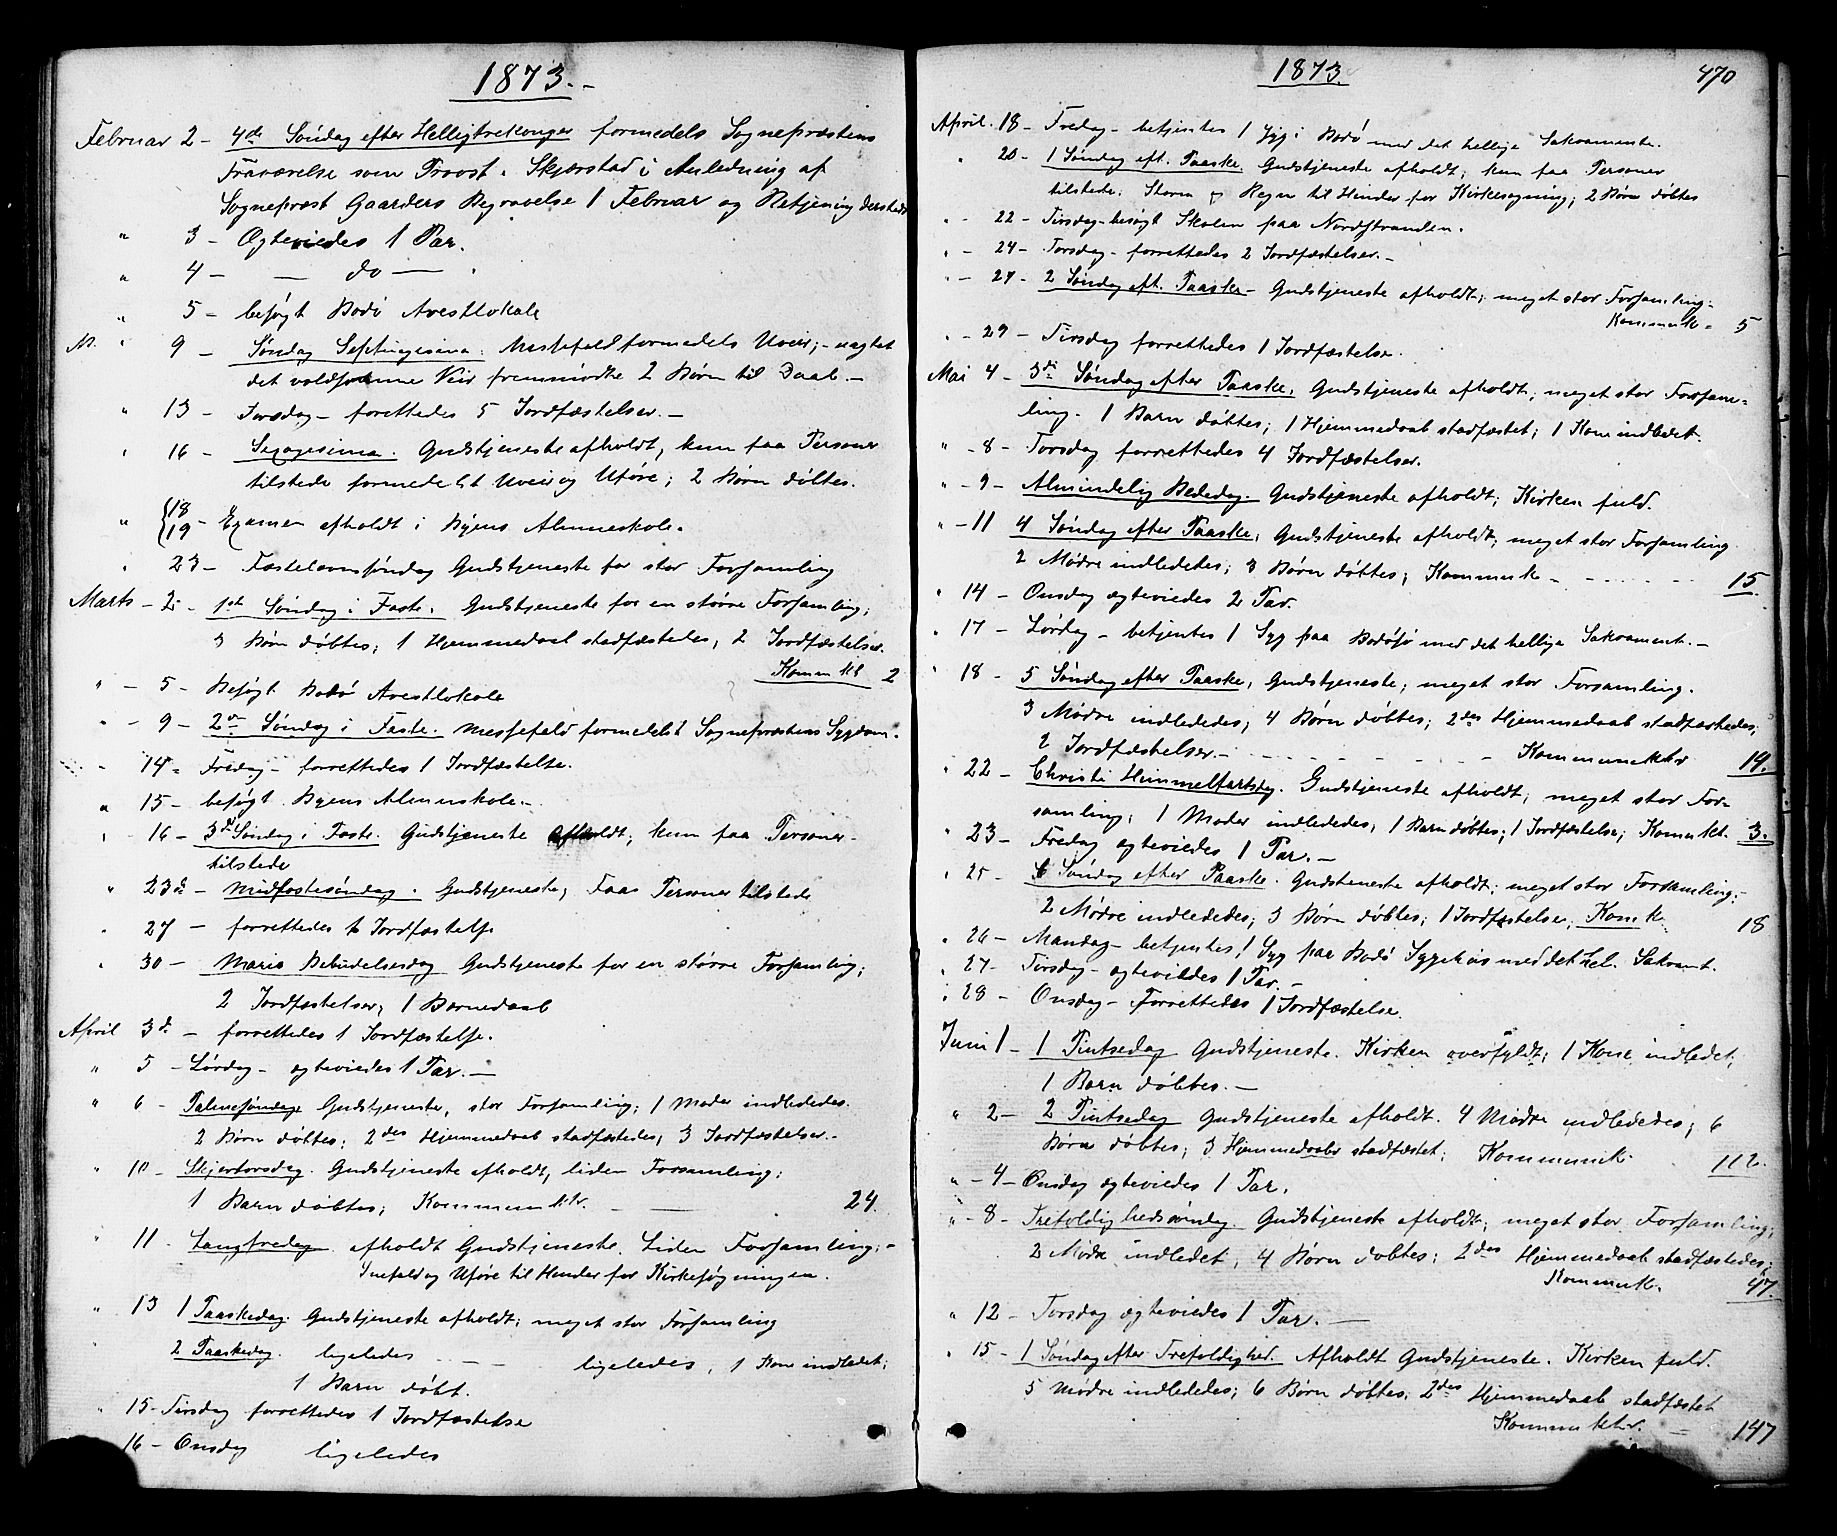 1873.
Februar 2 - 4de Søndag efter Helligtrekonger formedels Sognepræstens
Fraværelse som Provst i Skjerstad i Anledning af
Sognepræst Gaarders Begravelse 1 Februar og Betjening dersteds
" 3 - Ægteviedes 1 Par.
" 4 - — do —
" 5 - besøgt Bodø Arestlokale
" 9 - Søndag Septuagesima. Messefald formedels Uveir; - uagtet
det voldsomme Veir fremmødte 2 Børn til Daab. -
" 13 - Torsdag - forettedes 5 Jordfæstelser. -
" 16 - Sexagesima. Gudstjeneste afholdt, kun faa Personer
tilstede formedelst Uveir og Uføre; 2 Børn døbtes.
" {18 19 - Examen afholdt i Byens Almueskole.
" 23 - Fastelavnssøndag Gudstjeneste for stor Forsamling
Marts - 2 - 1ste Søndag i Faste. Gudstjeneste for en større Forsamling;
3 Børn døbtes; 1 Hjemmedaab stadfæstedes, 2 Jordfæstelser.
Komm 2
" - 5 - Besøgt Bodø Arestlokale
" - 9 - 2den Søndag i Faste. Messefald formedelst Sognepræstens Sygdom.
" 14 - Fredag - forrettedes 1 Jordfæstelse.
" 15 - besøgt Byens Almueskole. -
" 16 - 3die Søndag i Faste. Gudstjeneste afholdt; kun faa Personer
tilstede
" 23de - Midfastesøndag. Gudstjeneste, Faa Personer tilstede
" 27 - forrettedes Jordfæstelse
" 30 - Mariæ Bebudelsesdag Gudstjeneste for en større Forsamling;
2 Jordfæstelser, 1 Barnedaab
April 3d - forrettedes 1 Jordfæstelse.
" 5 - Lørdag - ægteviedes 1 Par. -
" 6 - Palmesøndag Gudstjeneste, stor Forsamling; 1 Moder indlededes.
2 Børn døbtes; 2des Hjemmedaab stadfæstedes, 3 Jordfæstelser. -
" 10 - Skjertorsdag. Gudstjeneste afholdt, liden Forsamling;
1 Barn døbtes; Kommunik. — 24.
" 11 - Langfredag afholdt Gudstjeneste. Liden Forsamling; -
Snefald og Uføre til Hinder for Kirkesøgningen.
" 13 1 Paaskedag. Gudstjeneste afholdt; meget stor Forsamling
2 Paaskedag. ligeledes — ligeledes, 1 Kone indledet;
1 Barn døbt.
" 15 - Tirsdag forrettedes 1 Jordfæstelse
16 - Onsdag ligeledes
1873. 470
April. 18 - Fredag - betjentes 1 Syg i Bodø med det hellige Sakramente.
" 20 - 1 Søndag eft. Paaske. Gudstjeneste afholdt; kun faa Personer
tilstede; Storm og Regn til Hinder for Kirkesøgning; 2 Børn døbtes
" - 22 - Tirsdag - besøgt Skolen paa Nordstranden.
" - 24 - Torsdag - forrettedes 2 Jordfæstelser. -
" - 27 - 2 Søndag eft. Paaske - Gudstjeneste afholdt; meget stor Forsamling -
Kommunik - 5
" - 29 - Tirsdag forrettedes 1 Jordfæstelse.
Mai 4 - 3die Søndag efter Paaske. Gudstjeneste afholdt; meget stor Forsam=
ling. 1 Barn døbtes; 1 Hjemmedaab stadfæstet; 1 Kone indledet.
" - 8 - Torsdag forrettedes 4 Jordfæstelser.
" - 9 - Almindelig Bededag. Gudstjeneste afholdt; Kirken fuld.
" - 11 4 Søndag efter Paaske, Gudstjeneste afholdt; meget stor Forsamling
2 Mødre indlededes; 3 Børn døbtes, Kommunik - 15.
" 14 - Onsdag ægteviedes 2 Par.
" 17 - Lørdag - betjentes 1 Syg paa Bodøsjø med det hellige Sakrament. -
" 18 - 5 Søndag efter Paaske, Gudstjeneste; meget stor Forsamling.
3 Mødre indlededes, 4 Børn døbtes; 2des Hjemmedaab stadfæstedes,
2 Jordfæstelser. - Kommunikk 19.
" 22 - Christi Himmelfartsdag. Gudstjeneste afholdt; meget stor For-
samling; 1 Moder indlededes, 1 Barn døbtes; 1 Jordfæstelse; Komm. 3.
" 23 - Fredag ægteviedes 1 Par. -
" 25 - 6 Søndag efter Paaske. Gudsteneste afholdt; meget stor Forsamling; -
2 Mødre indlededes; 3 Børn døbtes, 1 Jordfæstelse, Kom k. 18
" 26 - Mandag - betjentes 1 Syg paa Bodø Sygehus med det hel. Sakramt.
" 27 - Tirsdag - ægteviedes 1 Par. -
" 28 - Onsdag - Forrettedes 1 Jordfæstelse.
Juni 1 - 1 Pintsedag Gudstjeneste. Kirken overfyldt; 1 Kone indledet,
1 Barn døbtes. -
" 2 - 2 Pintsedag Gudstjeneste afholdt. 4 Mødre indlededes; 6
Børn døbtes; 3 Hjemmedaab stadfæstet; Kommunik. 112.
" - 4 - Onsdag ægteviedes 1 Par.
" - 8 - Trefoldighedssøndag. Gudstjeneste afholdt; meget stor Forsamling;
2 Mødre indledet, 4 Børn døbtes; 2des Hjemmedaab stadfæstedes;
Kommunik. 47.
" 12 - Torsdag ægteviedes 1 Par. -
" 15 - 1 Søndag efter Trefoldighed. Afholdt Gudstjeneste. Kirken fuld.
5 Mødre indlededes; 6 Børn døbtes; 2des Hjemmedaab stadfæstet
Kommunik. - 147